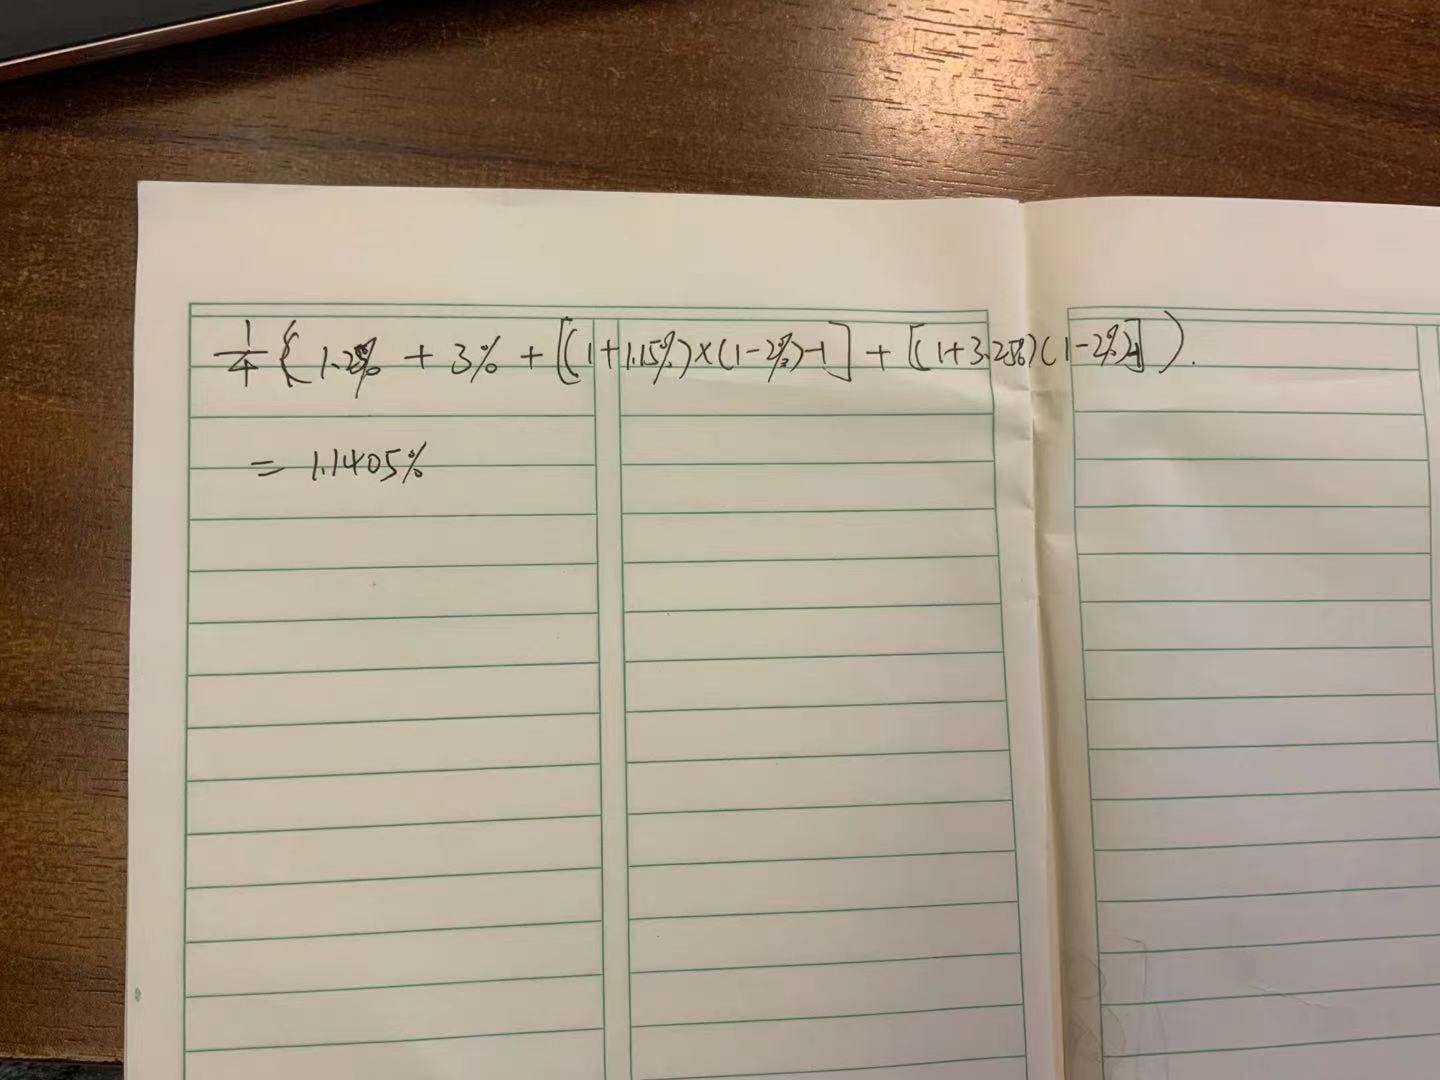 1/4 { 1.25% + 3% + [(1+1.15%)×(1-2%)-1] + [(1+3.25%)(1-2%)-1] ).
= 1.1405%